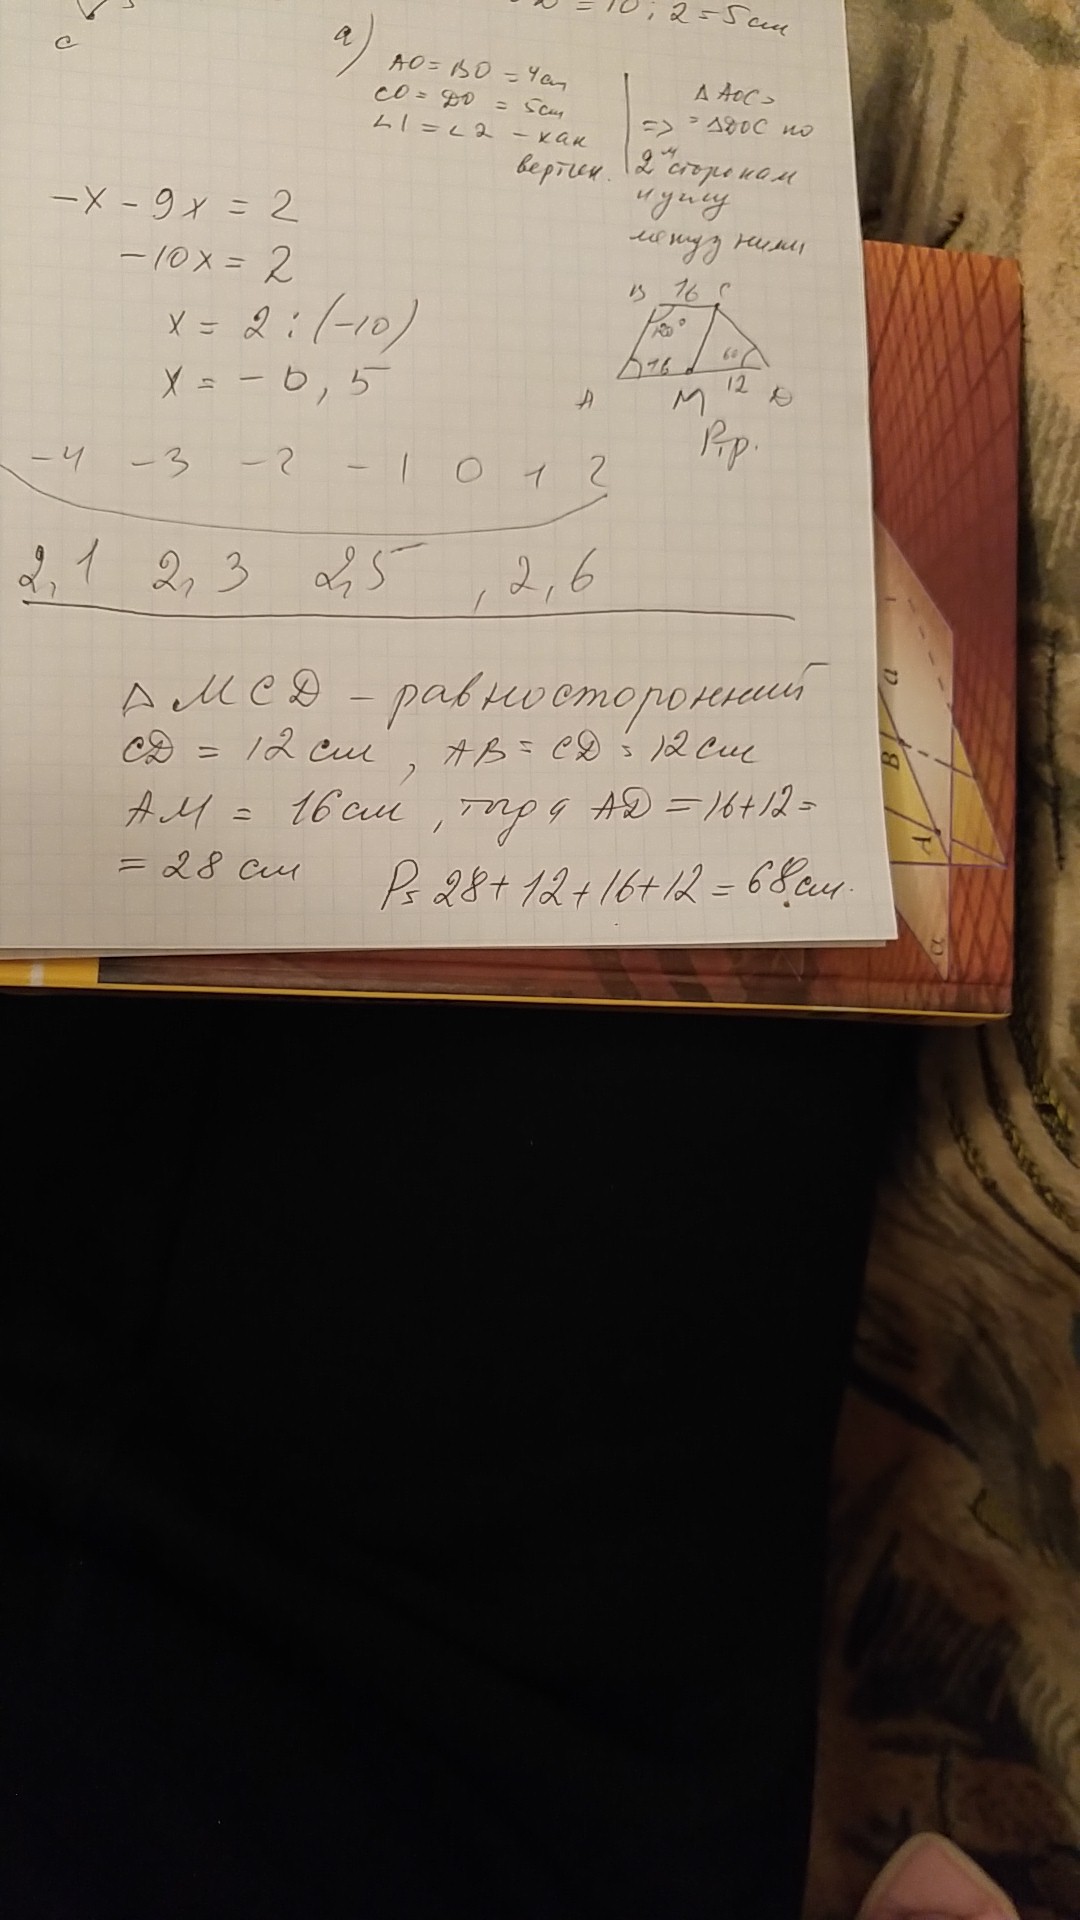 = 10 : 2 = 5 см
с
а)
АО = ВО = 4 см
СО = DО = 5 см
∠1 = ∠2 - как
вертик.
△ АОС
=> = △DOC по
2м сторонам
и углу
между ними
-x - 9x = 2
-10x = 2
x = 2 : (-10)
x = - 0, 5
B 16 C
120°
16 60
A M 12 D
Pтр.
-4 -3 -2 -1 0 1 2
2,1 2,3 2,5 , 2,6
△ MCD - равносторонний
CD = 12 см , AB = CD = 12 см
AM = 16 см , тогда AD = 16+12 =
= 28 см P= 28+12+16+12 = 68 см.
a
B
A
a